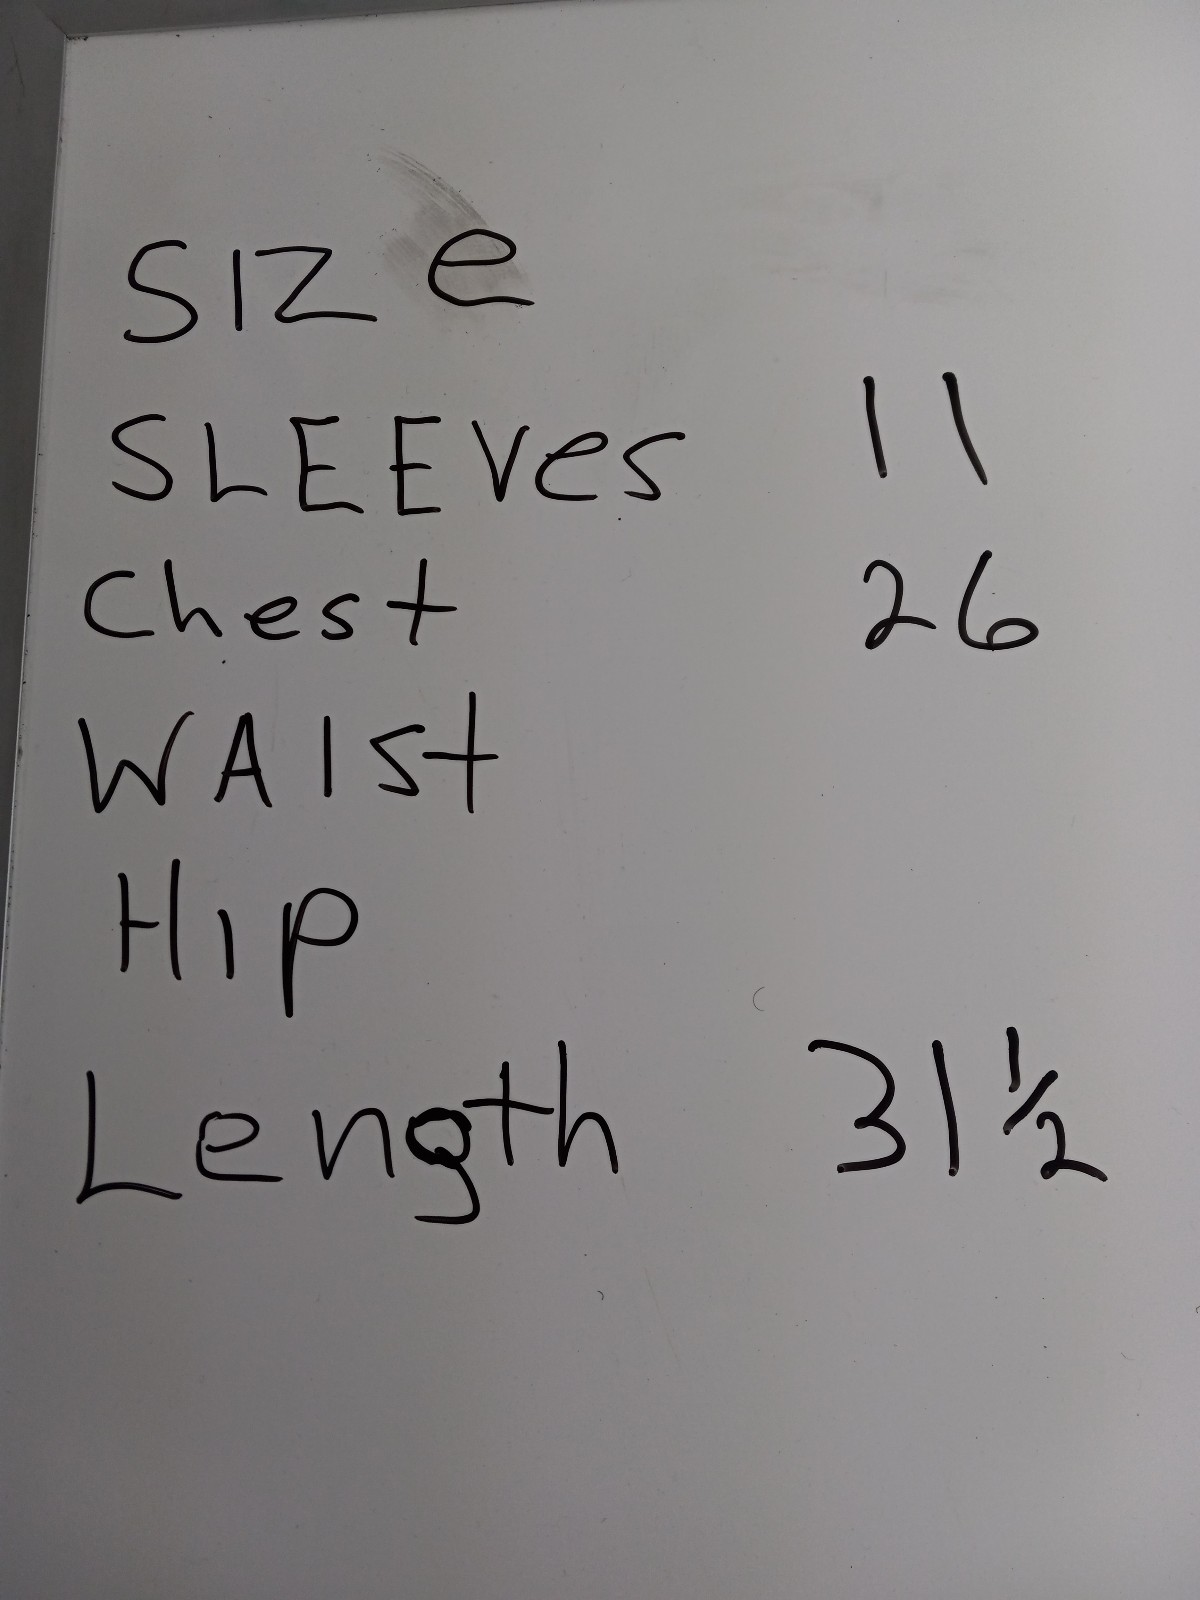 SIZe
SLEEVes 11
Chest 26
WAIst
HIp
Length 31 1/2